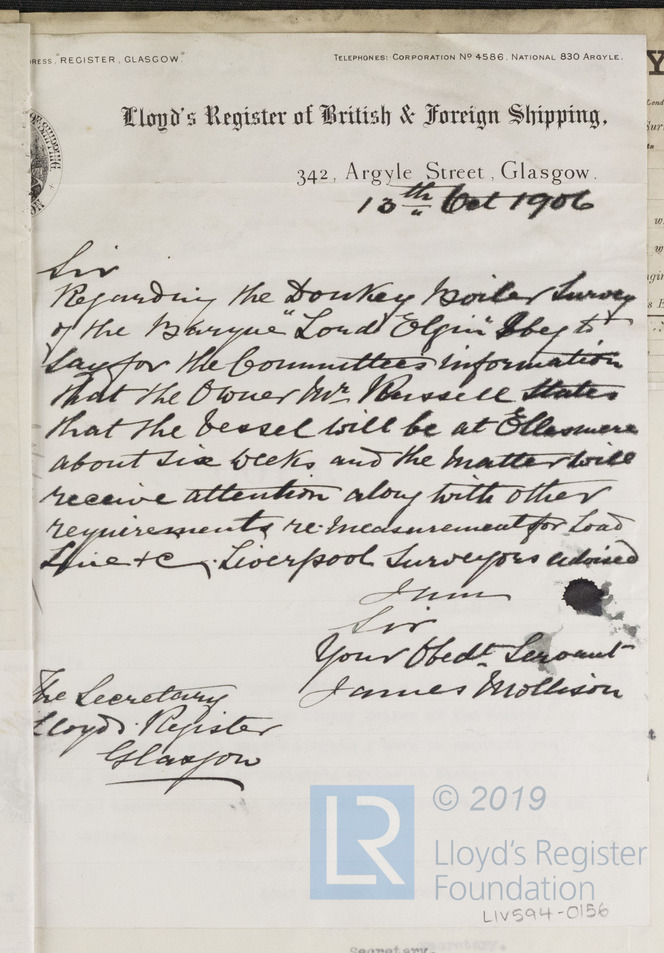 RESS, REGISTER, GLASGOW.
TELEPHONES: CORPORATION Nº 4586. NATIONAL 830 ARGYLE.
Lloyd's Register of British & Foreign Shipping,
342, Argyle Street, Glasgow.
13th Oct 1906
Sir
Regarding the Donkey Boiler Survey
of the Barque "Lord Elgin" I beg to
say for the Committees information
that the Owner Mr Russell states
that the vessel will be at Ellesmere
about six weeks and the matter will
receive attention along with other
requirements re-measurement for Load
Line &c. Liverpool Surveyors advised
I am
Sir
Your Obedt Servant
James Mollison
The Secretary
Lloyds Register
Glasgow
LR
© 2019
Lloyd's Register
Foundation
LIV594-0156
Secretary.